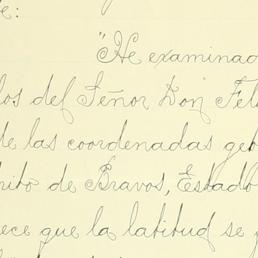 e:
"He examinad
los del Señor Don Fel
de las coordenadas geo
rito de Bravos, Estado
ece que la latitud se